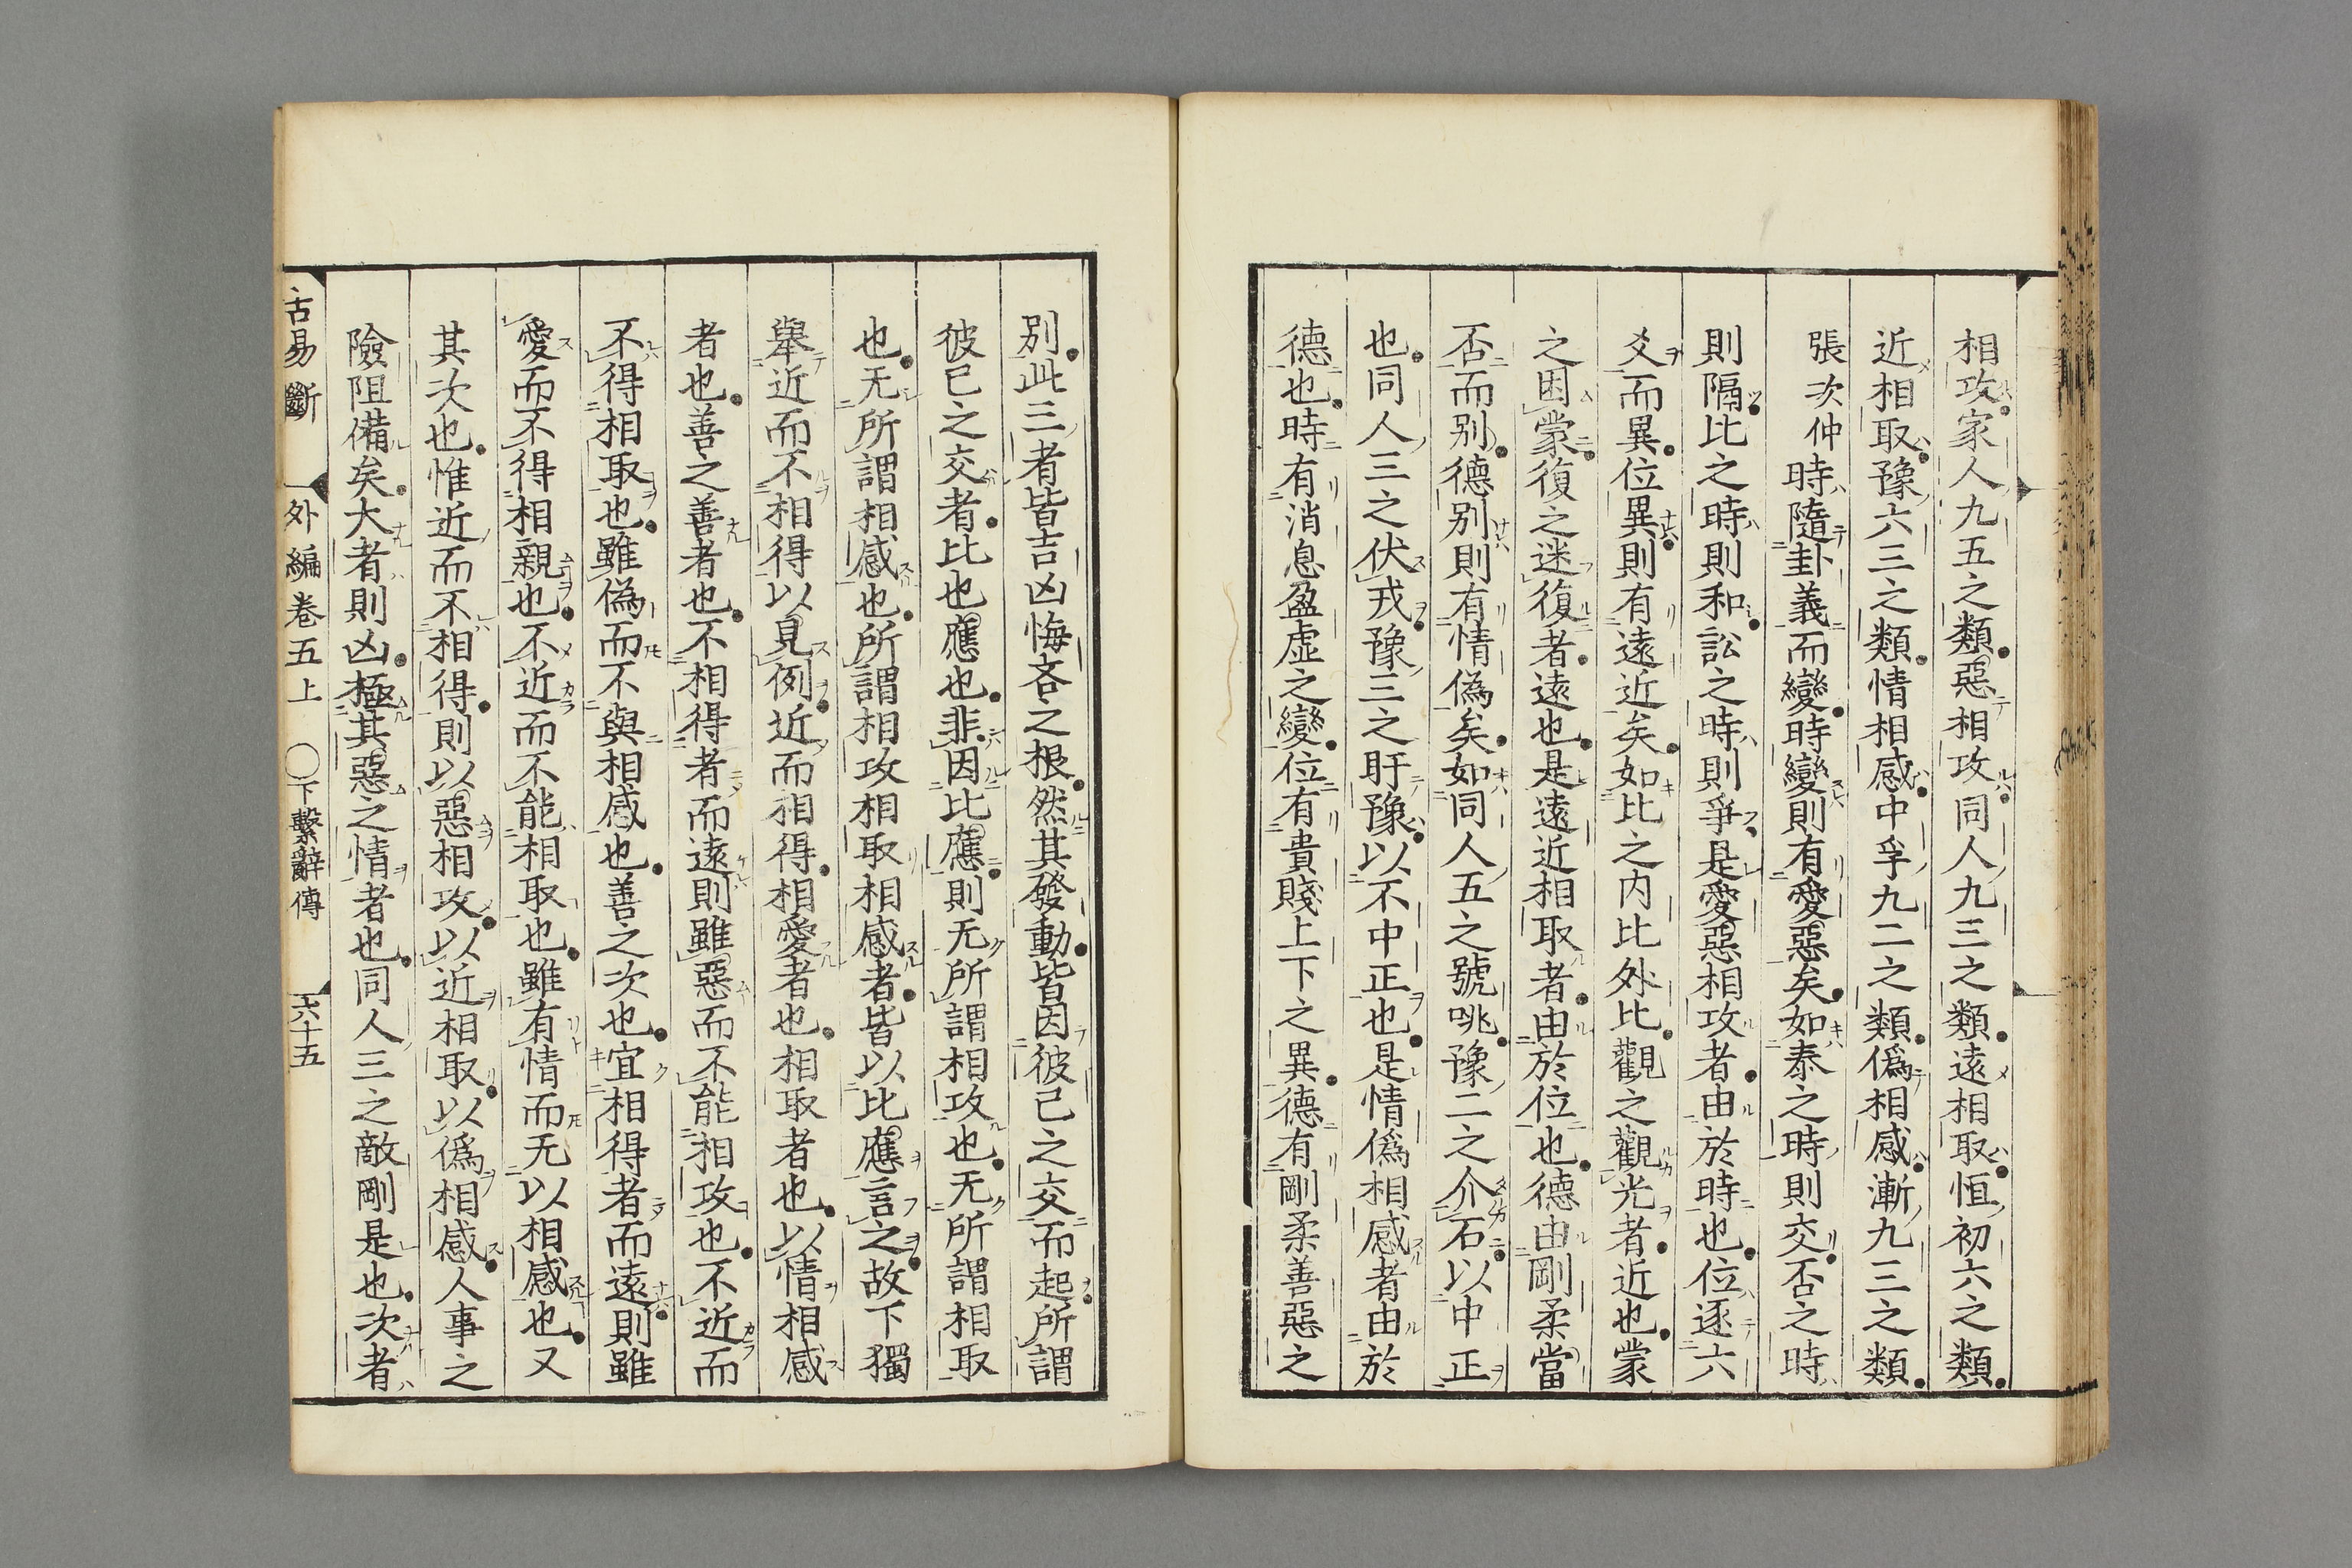 相攻家人九五之類惡相攻同人九三之類遠相取恒初六之類
近相取豫六三之類情相感中孚九二之類僞相感漸九三之類
張次仲時隨卦義而變時變則有愛惡矣如泰之時則交否之時
則隔比之時則和訟之時則爭是愛惡相攻者由於時也位逐六
爻而異位異則有遠近矣如比之内比外比觀之觀光者近也蒙
之困蒙復之迷復者遠也是遠近相取者由於位也德由剛柔當
否而别德别則有情僞矣如同人五之號咷豫二之介石以中正
也同人三之伏戎豫三之盱豫以不中正也是情僞相感者由於
德也時有消息盈虚之變位有貴賤上下之異德有剛柔善惡之
别此三者皆吉凶悔吝之根然其發動皆因彼己之交而起所謂
彼己之交者比也應也非因比應則无所謂相攻也无所謂相取
也无所謂相感也所謂相攻相取相感者皆以比應言之故下獨
舉近而不相得以見例近而相得相愛者也相取者也以情相感
者也善之善者也不相得者而遠則雖惡而不能相攻也不近而
不得相取也雖僞而不與相感也善之次也宜相得者而遠則雖
愛而不得相親也不近而不能相取也雖有情而无以相感也又
其次也惟近而不相得則以惡相攻以近相取以僞相感人事之
險阻備矣大者則凶極其惡之情者也同人三之敵剛是也次者
古易斷 外編卷五上 〇下繫辭傳 六十五